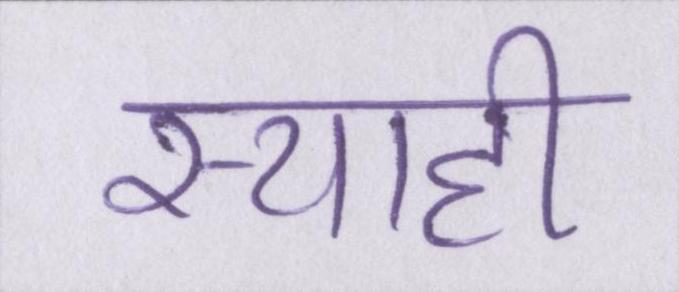 स्याही